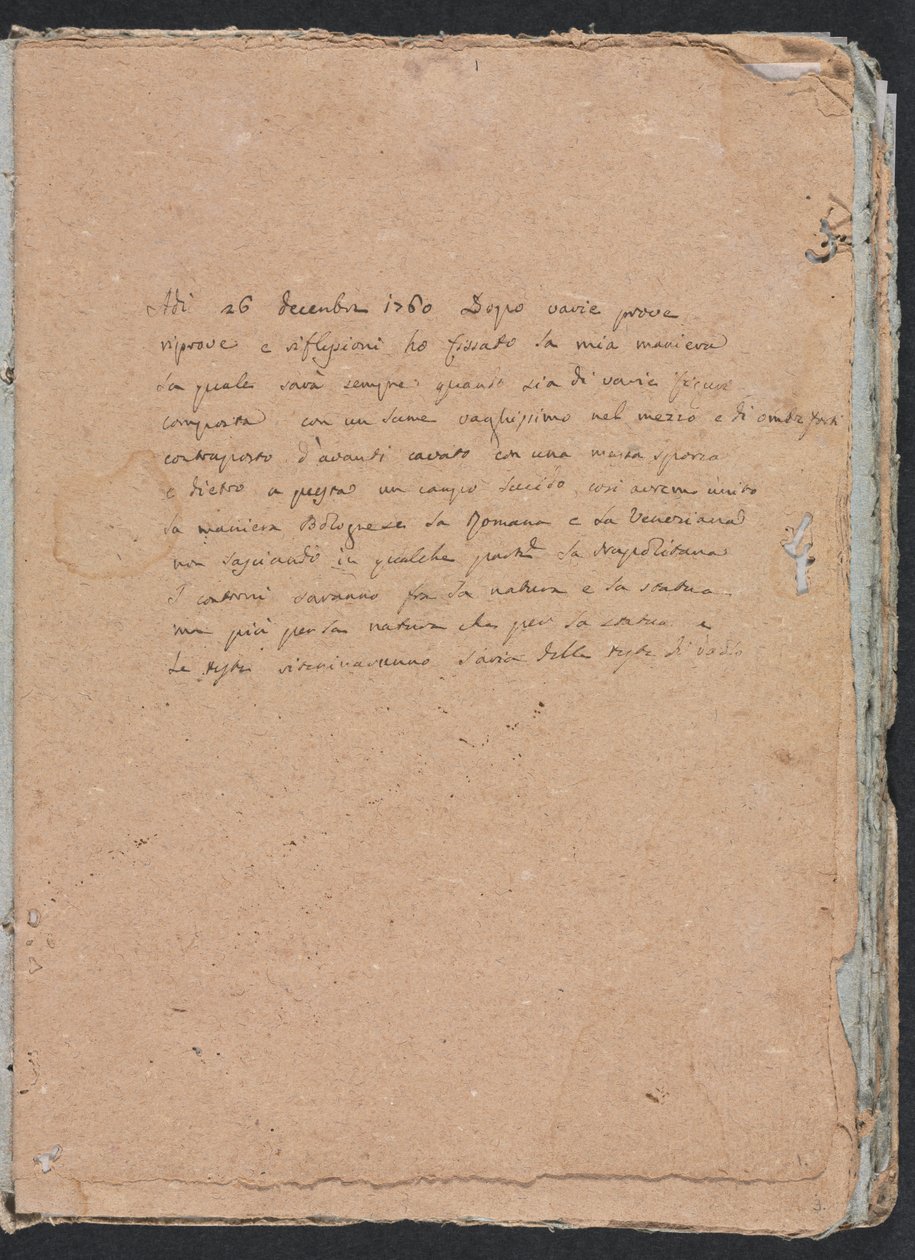 1
Adi 26 decembre 1760 Dopo varie prove
riprove e riflessioni ho fissato la mia maniera
la quale sarà sempre quando sia di varie figure
composta con un lume vaghissimo nel mezzo e di ombre forti
contraposto d'avanti cavato con una massa sporca
e dietro a questa un campo lucido così avremo unito
la maniera Bolognese la Romana e la Veneziana
non lasciando in qualche parte la Napolitana
I contorni saranno fra la natura e la statua
ma più per la natura che per la statua e
Le teste l'aria delle teste di